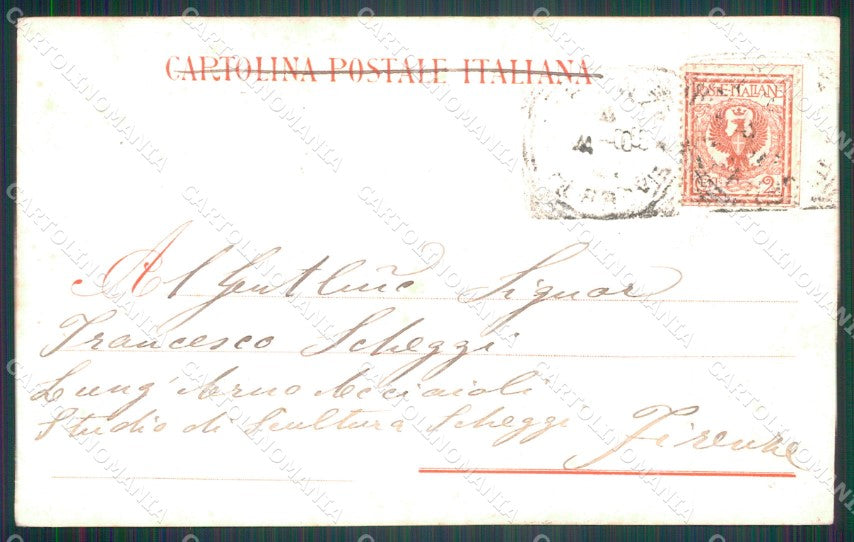 CARTOLINA POSTALE ITALIANA
POSTE ITALIANE
2
Al Gentlmo Signor
Francesco Scheggi
Lung'Arno Acciaioli
Studio di Scultura Scheggi Firenze
CARTOLINOMANIA